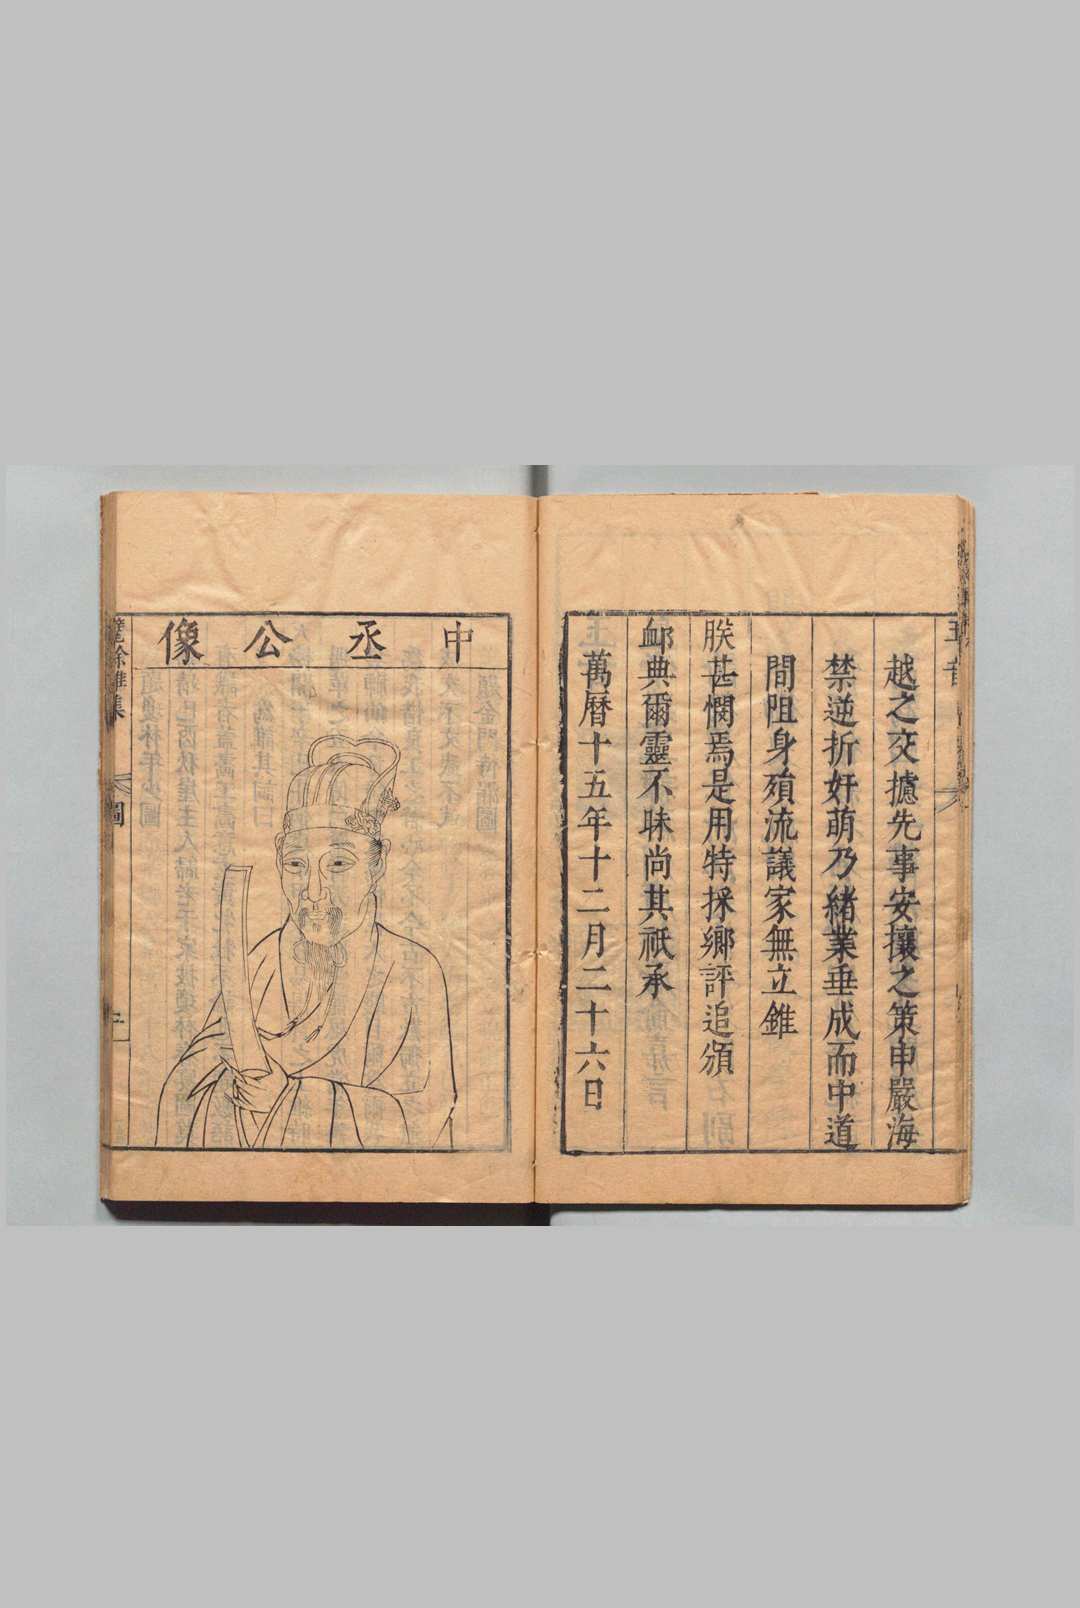 越之交攄先事安攘之策申嚴海
禁逆折奸萌乃緒業垂成而中道
間阻身殞流議家無立錐
朕甚憫焉是用特採鄉評追頒
卹典爾靈不昧尚其祇承
萬曆十五年十二月二十六日
中丞公像
甓餘雜集
圖